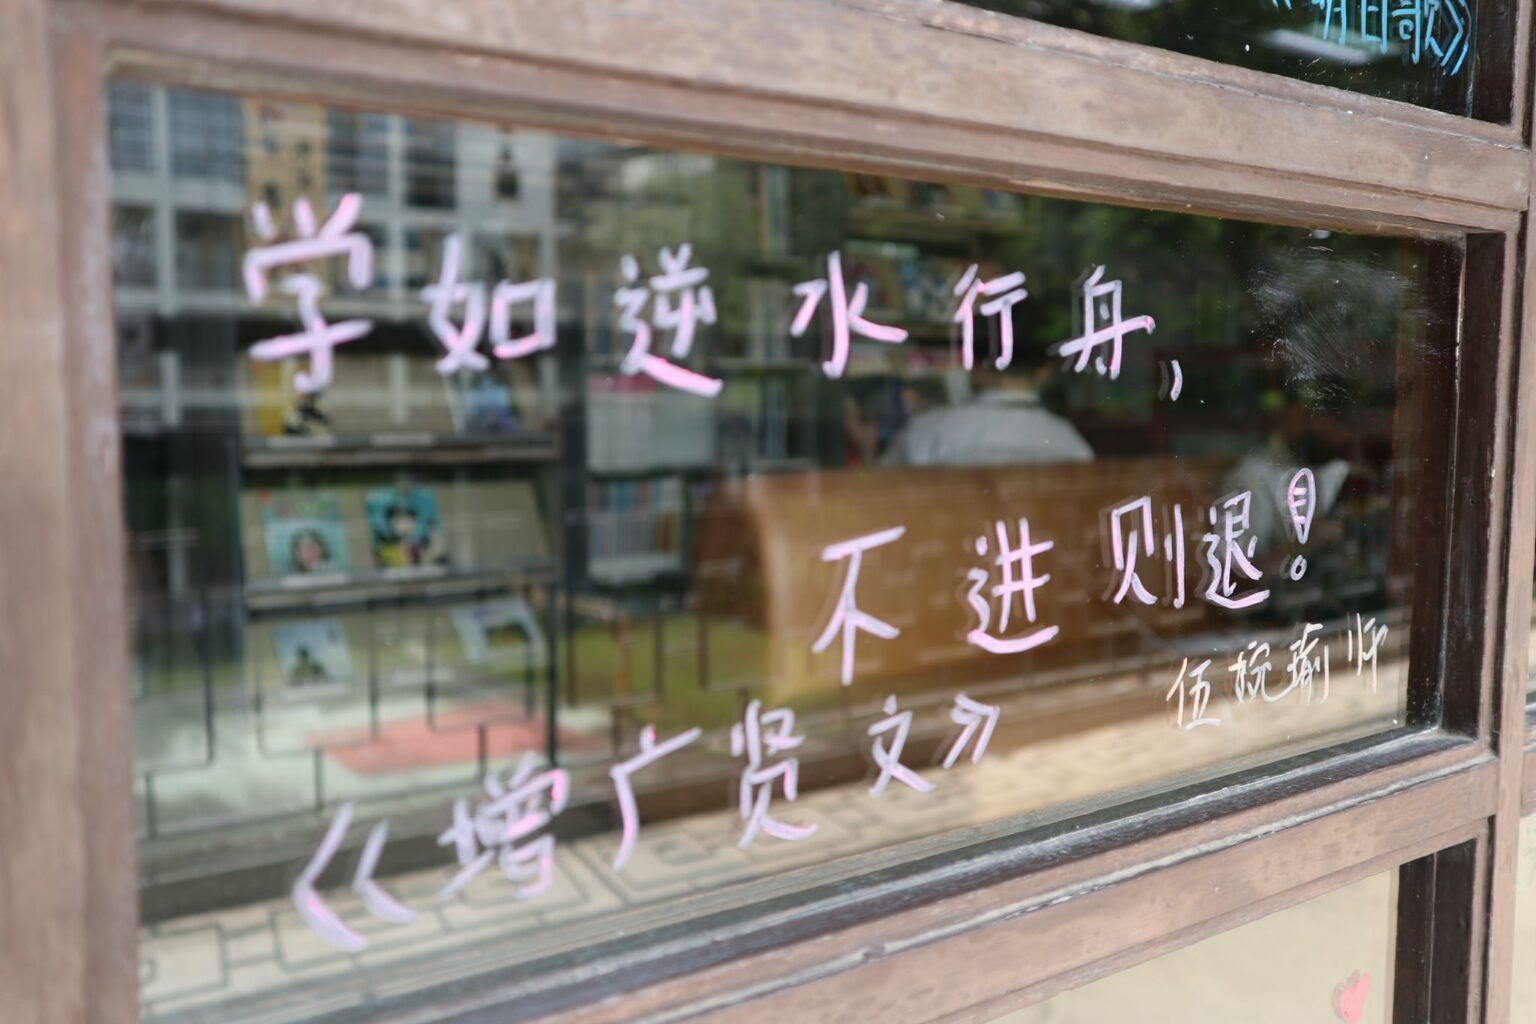 明日歌》
学如逆水行舟，
不进则退！
伍婉瑜 师
《增广贤文》